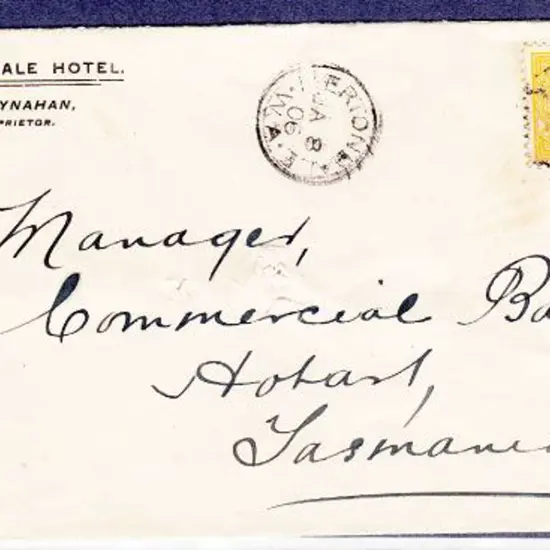 ALE HOTEL.
YNAHAN,
PRIETOR.
MERIONDALE W.A
JA 8
06
Manager,
Commercial Ba
Hobart,
Tasmania